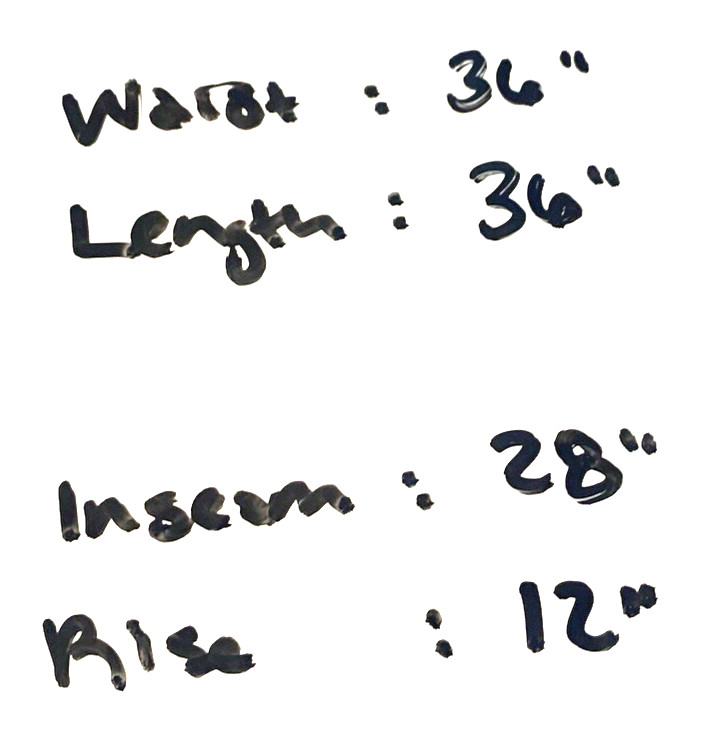 Waist : 36"
Length : 36"
Inseam : 28"
Rise : 12"